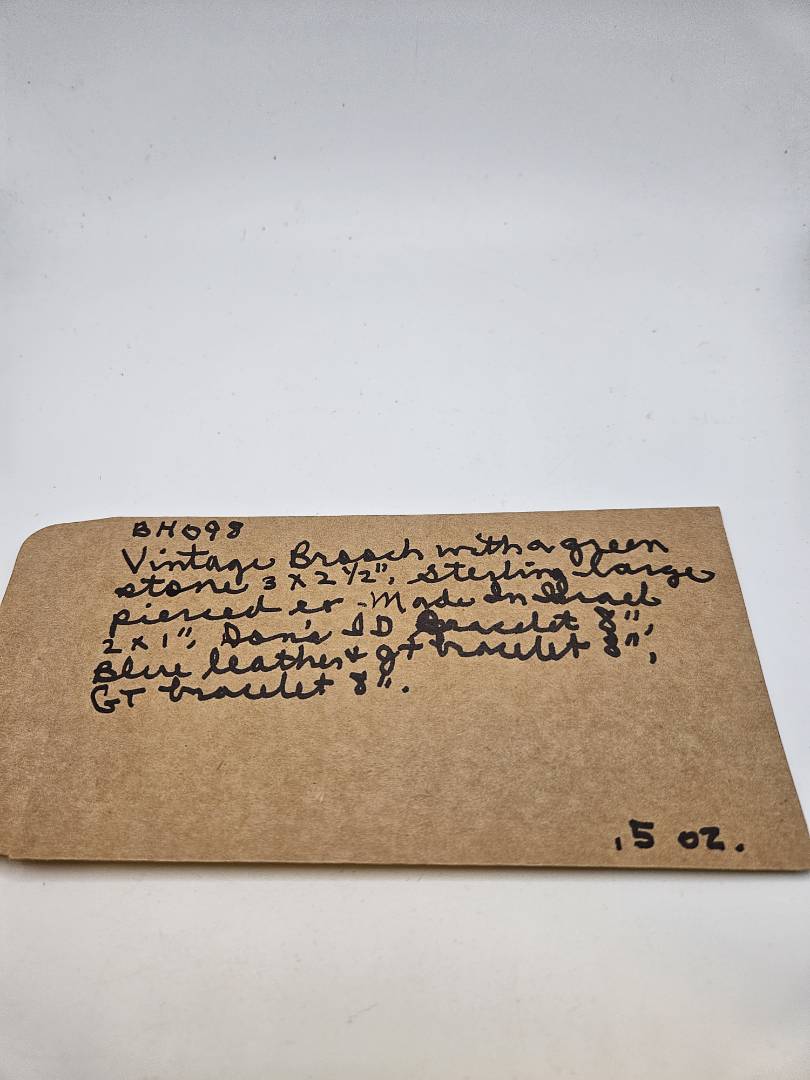 BH098
Vintage Brooch with a green
stone 3 x 2 1/2", Sterling large
pierced er - Made In Israel
2 x 1", Don's ID Bracelet 8",
Blue leather & gt bracelet 8",
GT bracelet 8".
.5 oz.